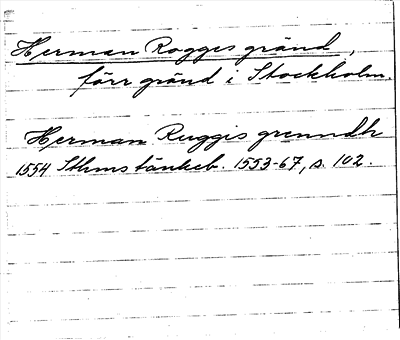 Herman Rogges gränd,
förr gränd i Stockholm.
Herman Ruggis grenndh
1554 Sthms tänkeb. 1553-67, s. 102.